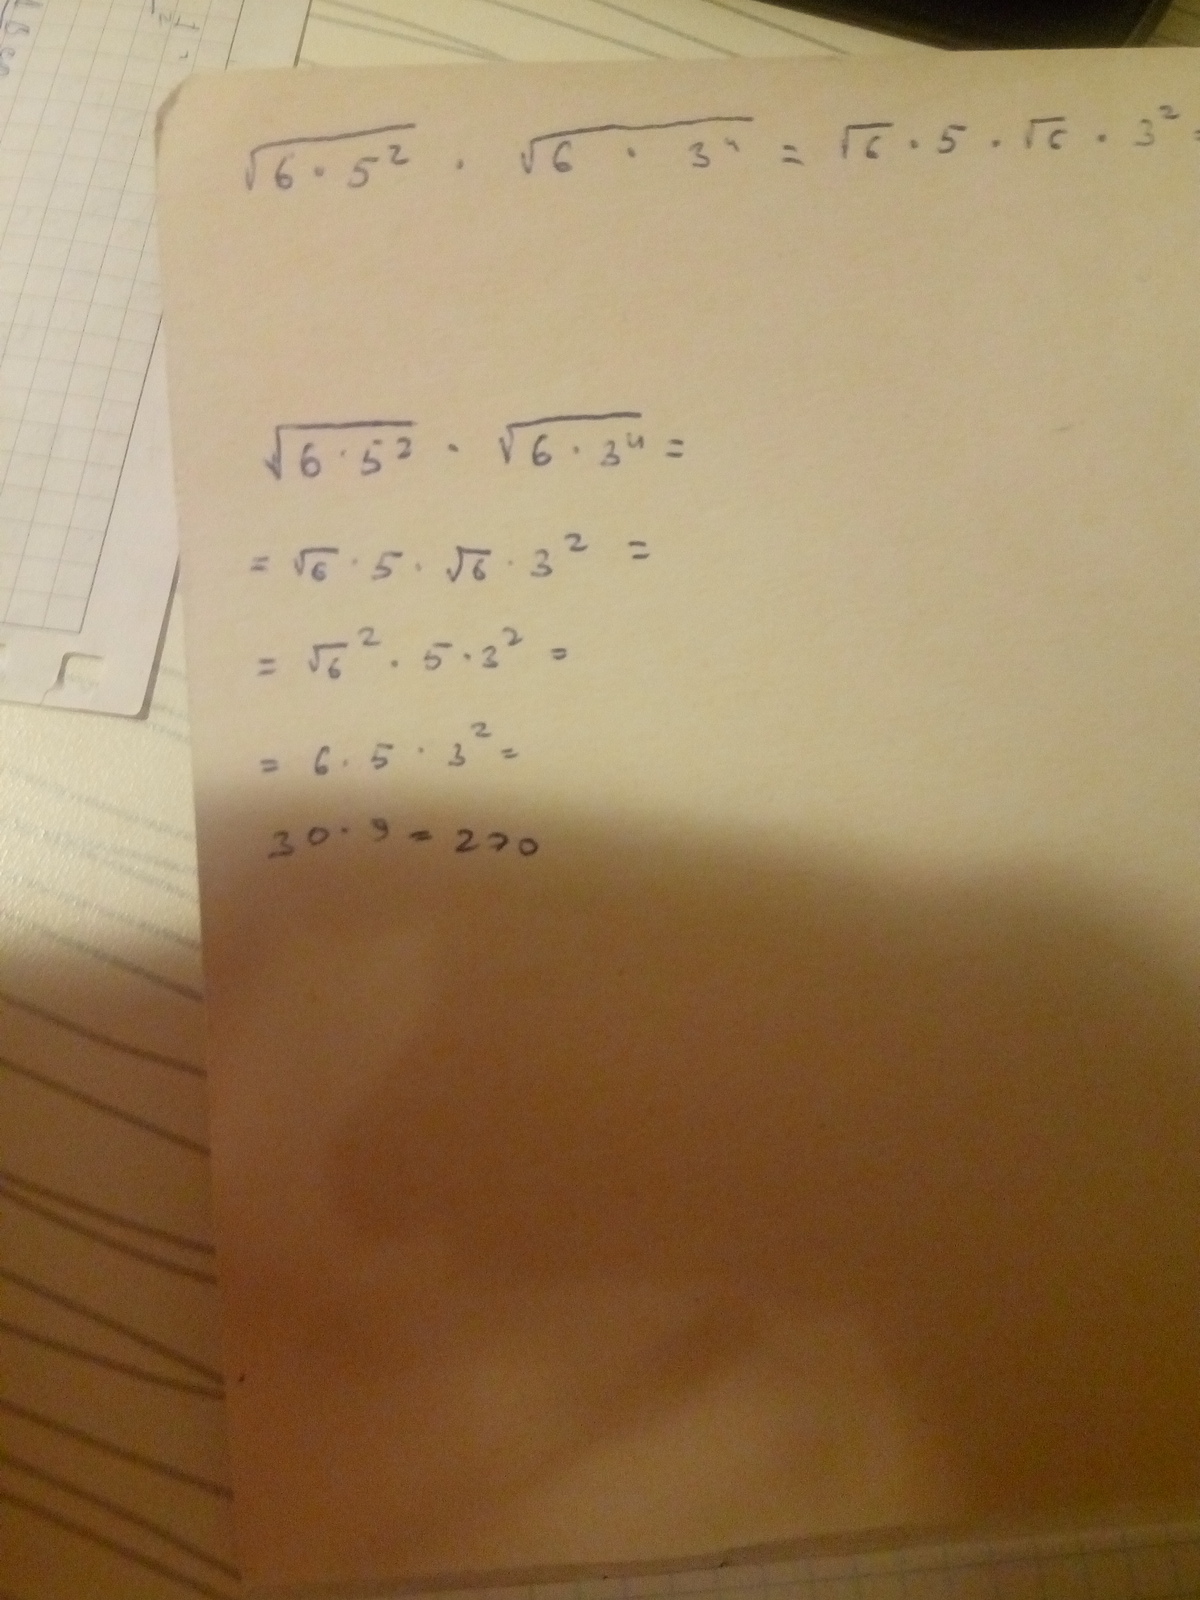 √6·5² · √6 · 3⁴ = √6 · 5 · √6 · 3² =
√6·5² · √6·3⁴ =
= √6 · 5 · √6 · 3² =
= √6² · 5·3² =
= 6 · 5 · 3² =
30·9 = 270